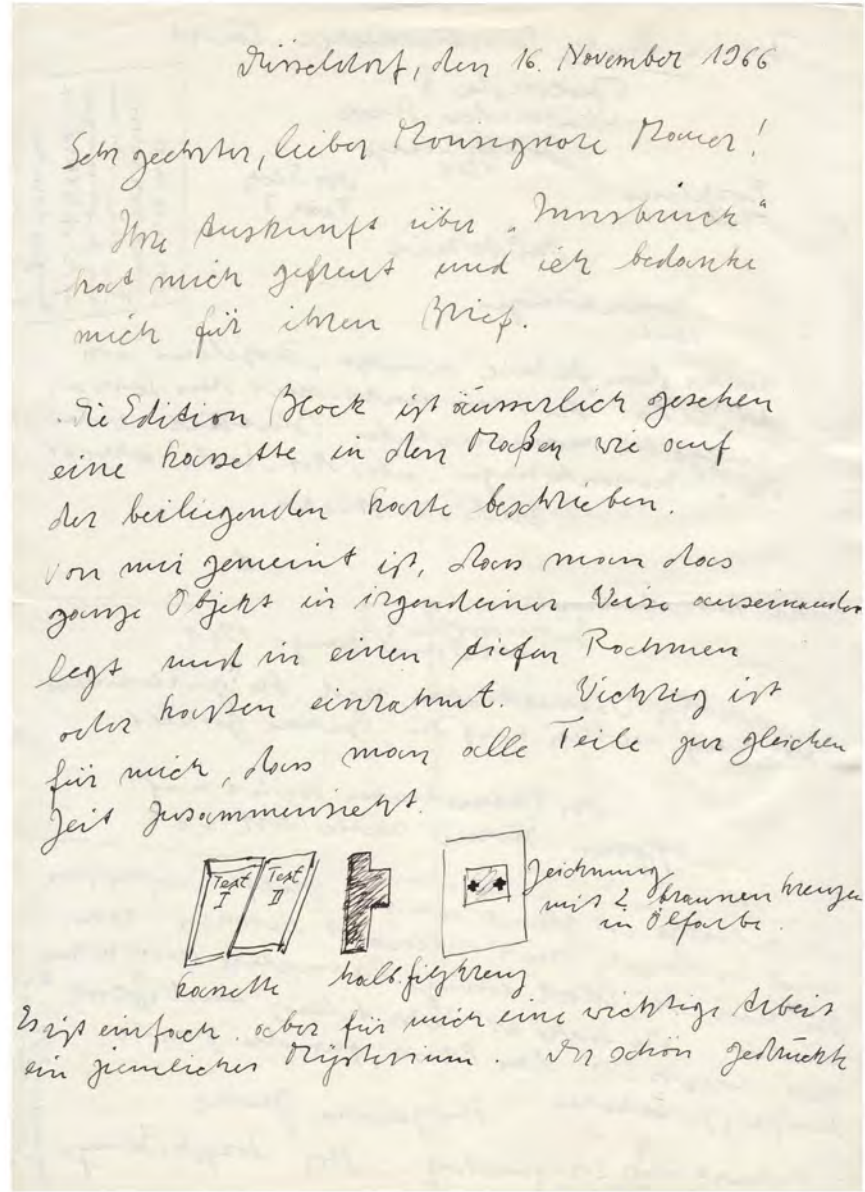 Düsseldorf, den 16. November 1966
Sehr geehrter, lieber Monsignore Mauer!
Ihre Auskunft über „Innsbruck“
hat mich gefreut und ich bedanke
mich für ihren Brief.
Die Edition Block ist äusserlich gesehen
eine Kassette in den Maßen wie auf
der beiliegenden Karte beschrieben.
Von mir gemeint ist, dass man das
ganze Objekt in irgendeiner Weise auseinander
legt und in einen tiefen Rahmen
oder Kasten einrahmt. Wichtig ist
für mich, dass man alle Teile zur gleichen
Zeit zusammensieht.
Text I
Text II
Zeichnung
mit 2 braunen Kreuzen
in Ölfarbe.
Kassette
halb. filzkreuz
Es ist einfach. aber für mich eine wichtige Arbeit
ein ziemliches Mysterium. Der schön gedruckte